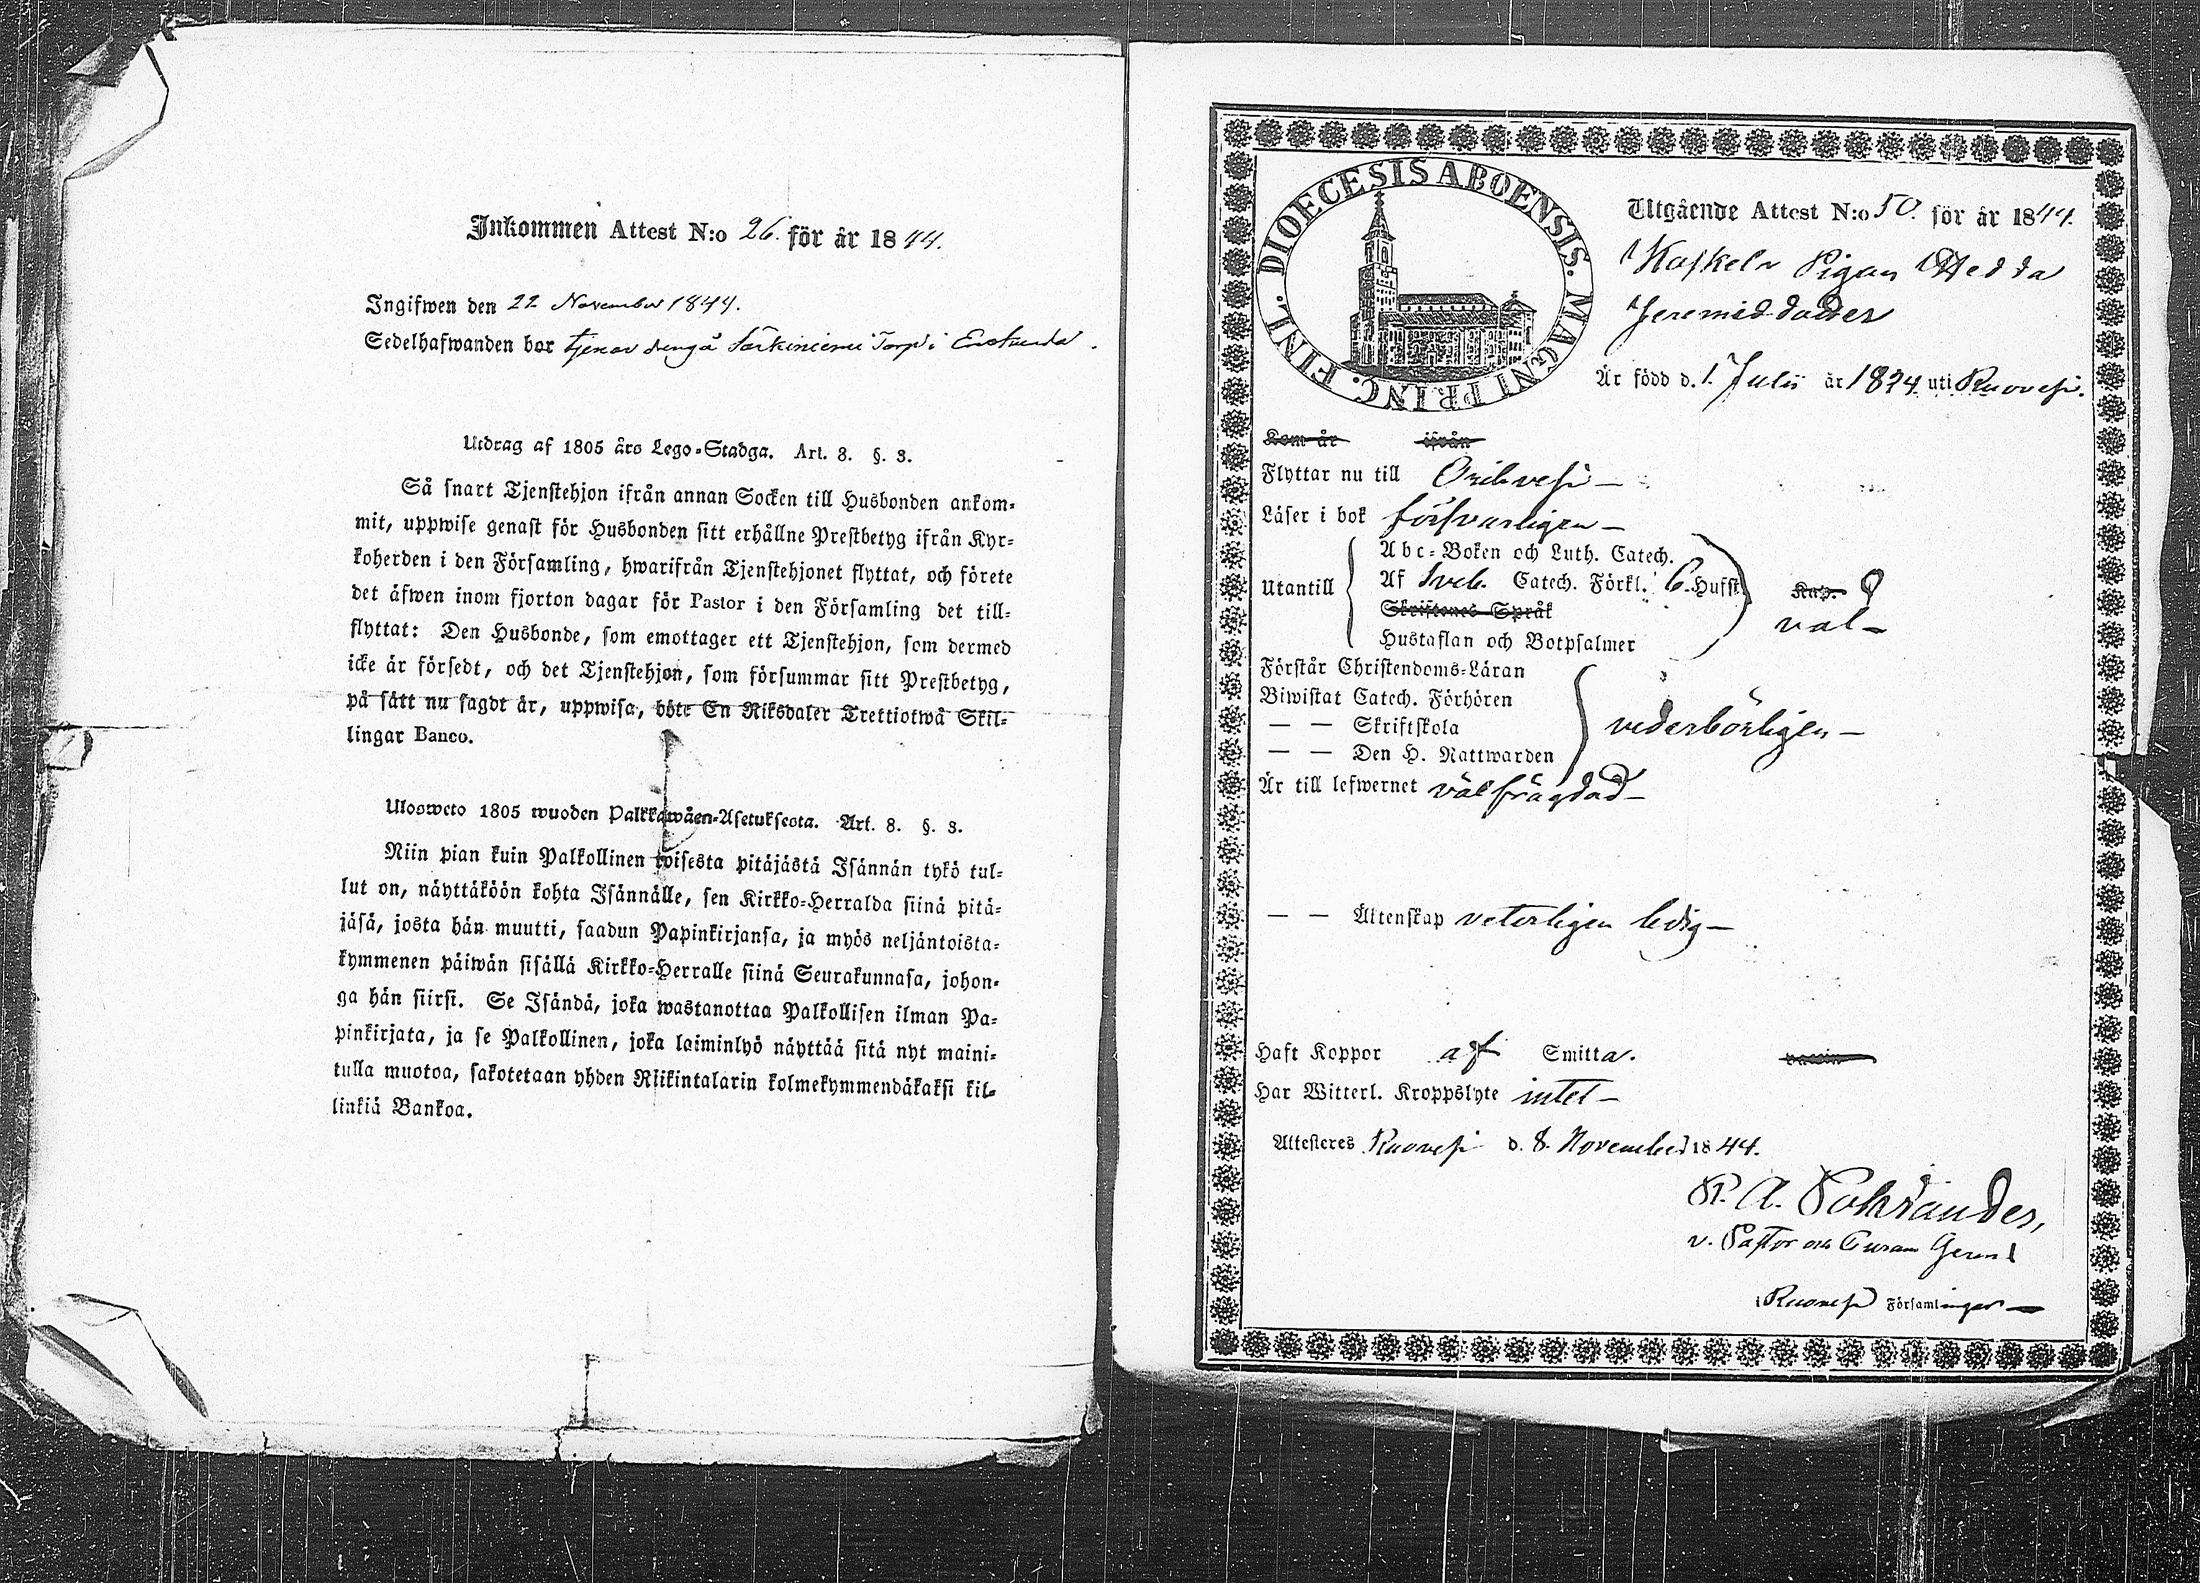 Inkommen Attest N:o 26. för år 1844.
Ingifwen den 22 November 1844.
Sedelhafwanden bor tjenar Torp i
Utdrag af 1805 års Lego-Stadga. Art. 8. §. 3.
Så snart Tjenstehjon ifrån annan Socken till Husbonden ankom-
mit, uppwise genast för Husbonden sitt erhållne Prestbetyg ifrån Kyr-
koherden i den Församling, hwarifrån Tjenstehjonet flyttat, och förete
det äfwen inom fjorton dagar för Pastor i den Församling det till-
flyttat: Den Husbonde, som emottager ett Tjenstehjon, som dermed
icke är försedt, och det Tjenstehjon, som försummar sitt Prestbetyg,
på sätt nu sagdt är, uppwisa, böte En Riksdaler Trettiotwå Skil-
lingar Banco.
Ulosweto 1805 wuoden Palkkawäen-Asetuksesta. Art. 8. §. 3.
Niin pian kuin Palkollinen toisesta pitäjästä Isännän tykö tul-
lut on, näyttäköön kohta Isännälle, sen Kirkko-Herralda siinä pitä-
jäsä, josta hän muutti, saadun Papinkirjansa, ja myös neljäntoista-
kymmenen päiwän sisällä Kirkko-Herralle siinä Seurakunnasa, johon-
ga hän siirsi. Se Isändä, joka wastanottaa Palkollisen ilman Pa-
pinkirjata, ja se Palkollinen, joka laiminlyö näyttää sitä nyt maini-
tulla muotoa, sakotetaan yhden Riikintalarin kolmekymmendäkaksi kil-
linkiä Bankoa.
DIOECESIS ABOENSIS. MAGNI PRINC. FINL.
Utgående Attest N:o 50. för år 1844.
Pigan Hedda
Jeremiddotter
Är född d. 1. Julii år 1824 uti Ruovesi.
Kom år ifrån
Flyttar nu till Orihvesi –
Läser i bok försvarligen –
Utantill
Abc-Boken och Luth. Catech.
Af Sveb. Catech. Förkl. 6. Hufst.
Skriftenes Språk
Hustaflan och Botpsalmer
Kap.
väl –
Förstår Christendoms-Läran
Biwistat Catech. Förhören
— — Skriftskola
— — Den H. Nattwarden
vederbörligen –
Är till lefwernet välfrägdad –
— — Äktenskap veterligen ledig –
Haft Koppor af Smitta. vaccin
Har Witterl. Kroppslyte intet –
Attesteres Ruovesi d. 8. November 1844.
v. Pastor och Curam Gerens
i Ruovesi Församlingar —